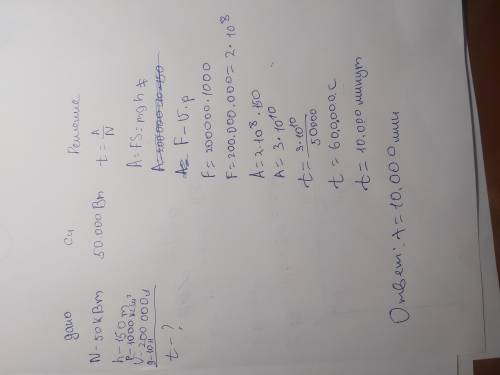 дано
N-50 кВт
h-150 m
р-1000 кг/м³
V-200 000 л
g-10 н
t-?
Си
50.000 Вт
Решение
t = A/N
A = FS = mgh
A=200000·10·150
A= F-V·p
F=200000·1000
F=200.000.000=2·10⁸
A=2·10⁸·150
A=3·10¹⁰
t= 3·10¹⁰/50000
t=600,000,с
t=10.000 минут
Ответ: t=10.000 мин